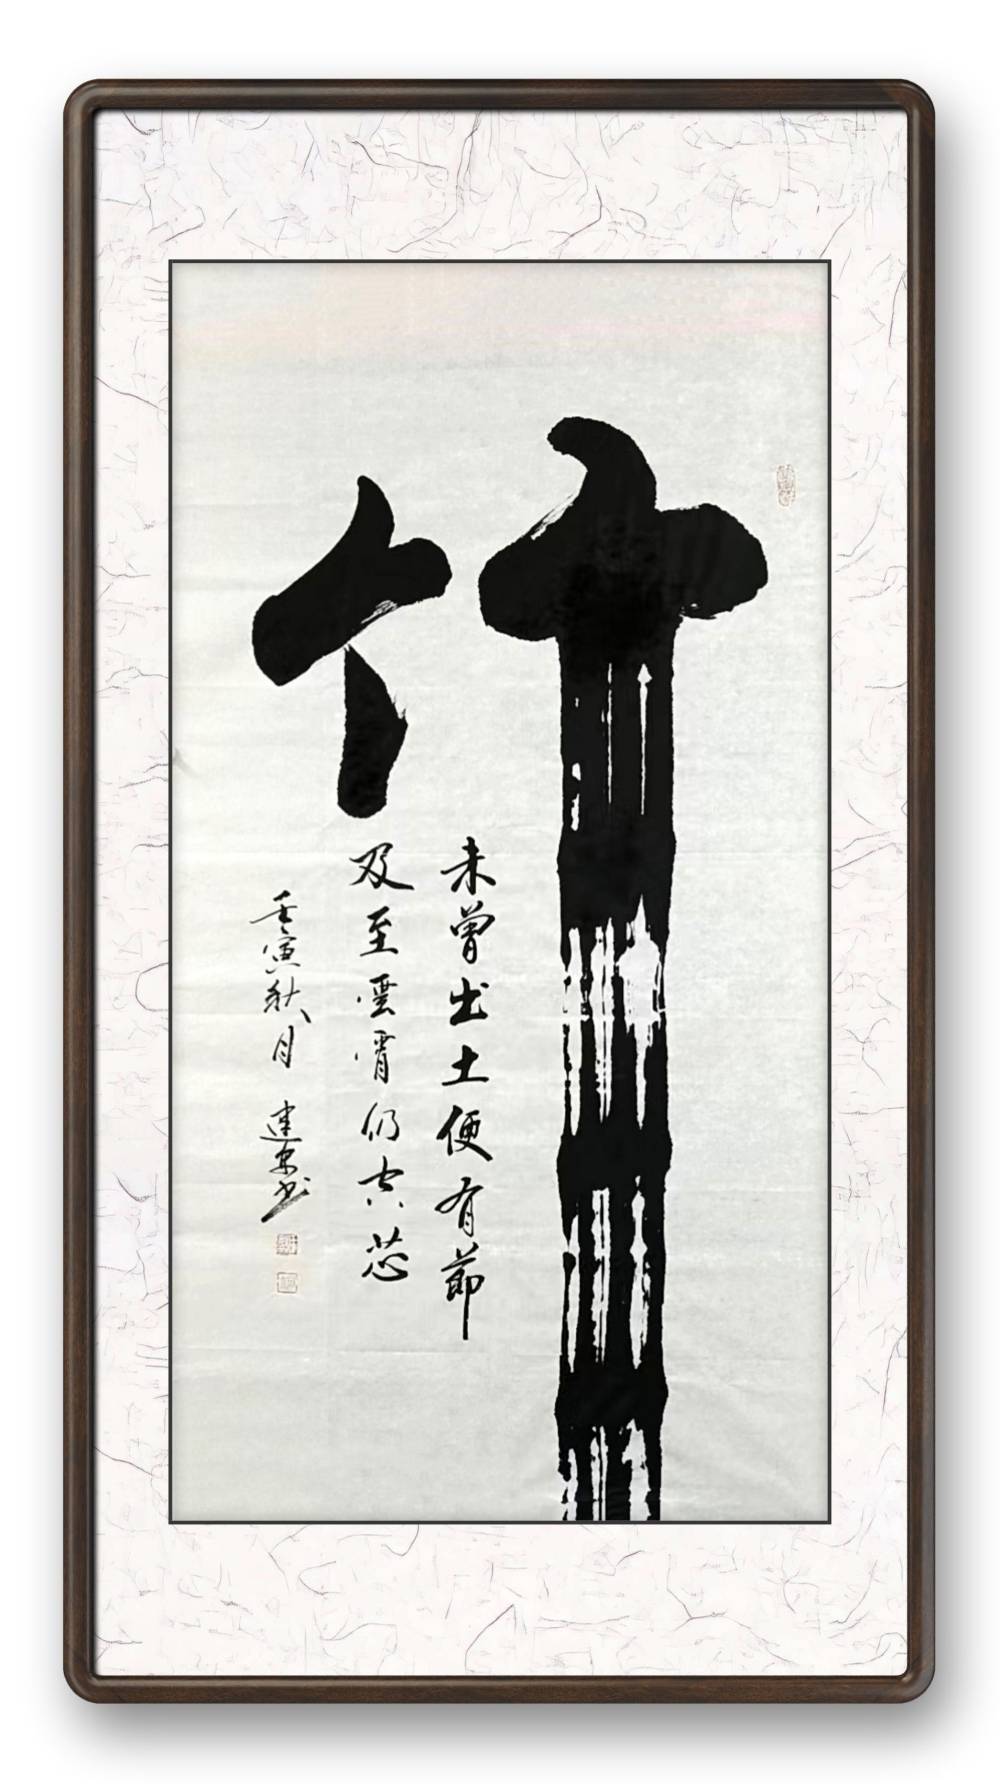 竹
未曾出土便有節
及至雲霄仍空芯
壬寅秋月 建東書